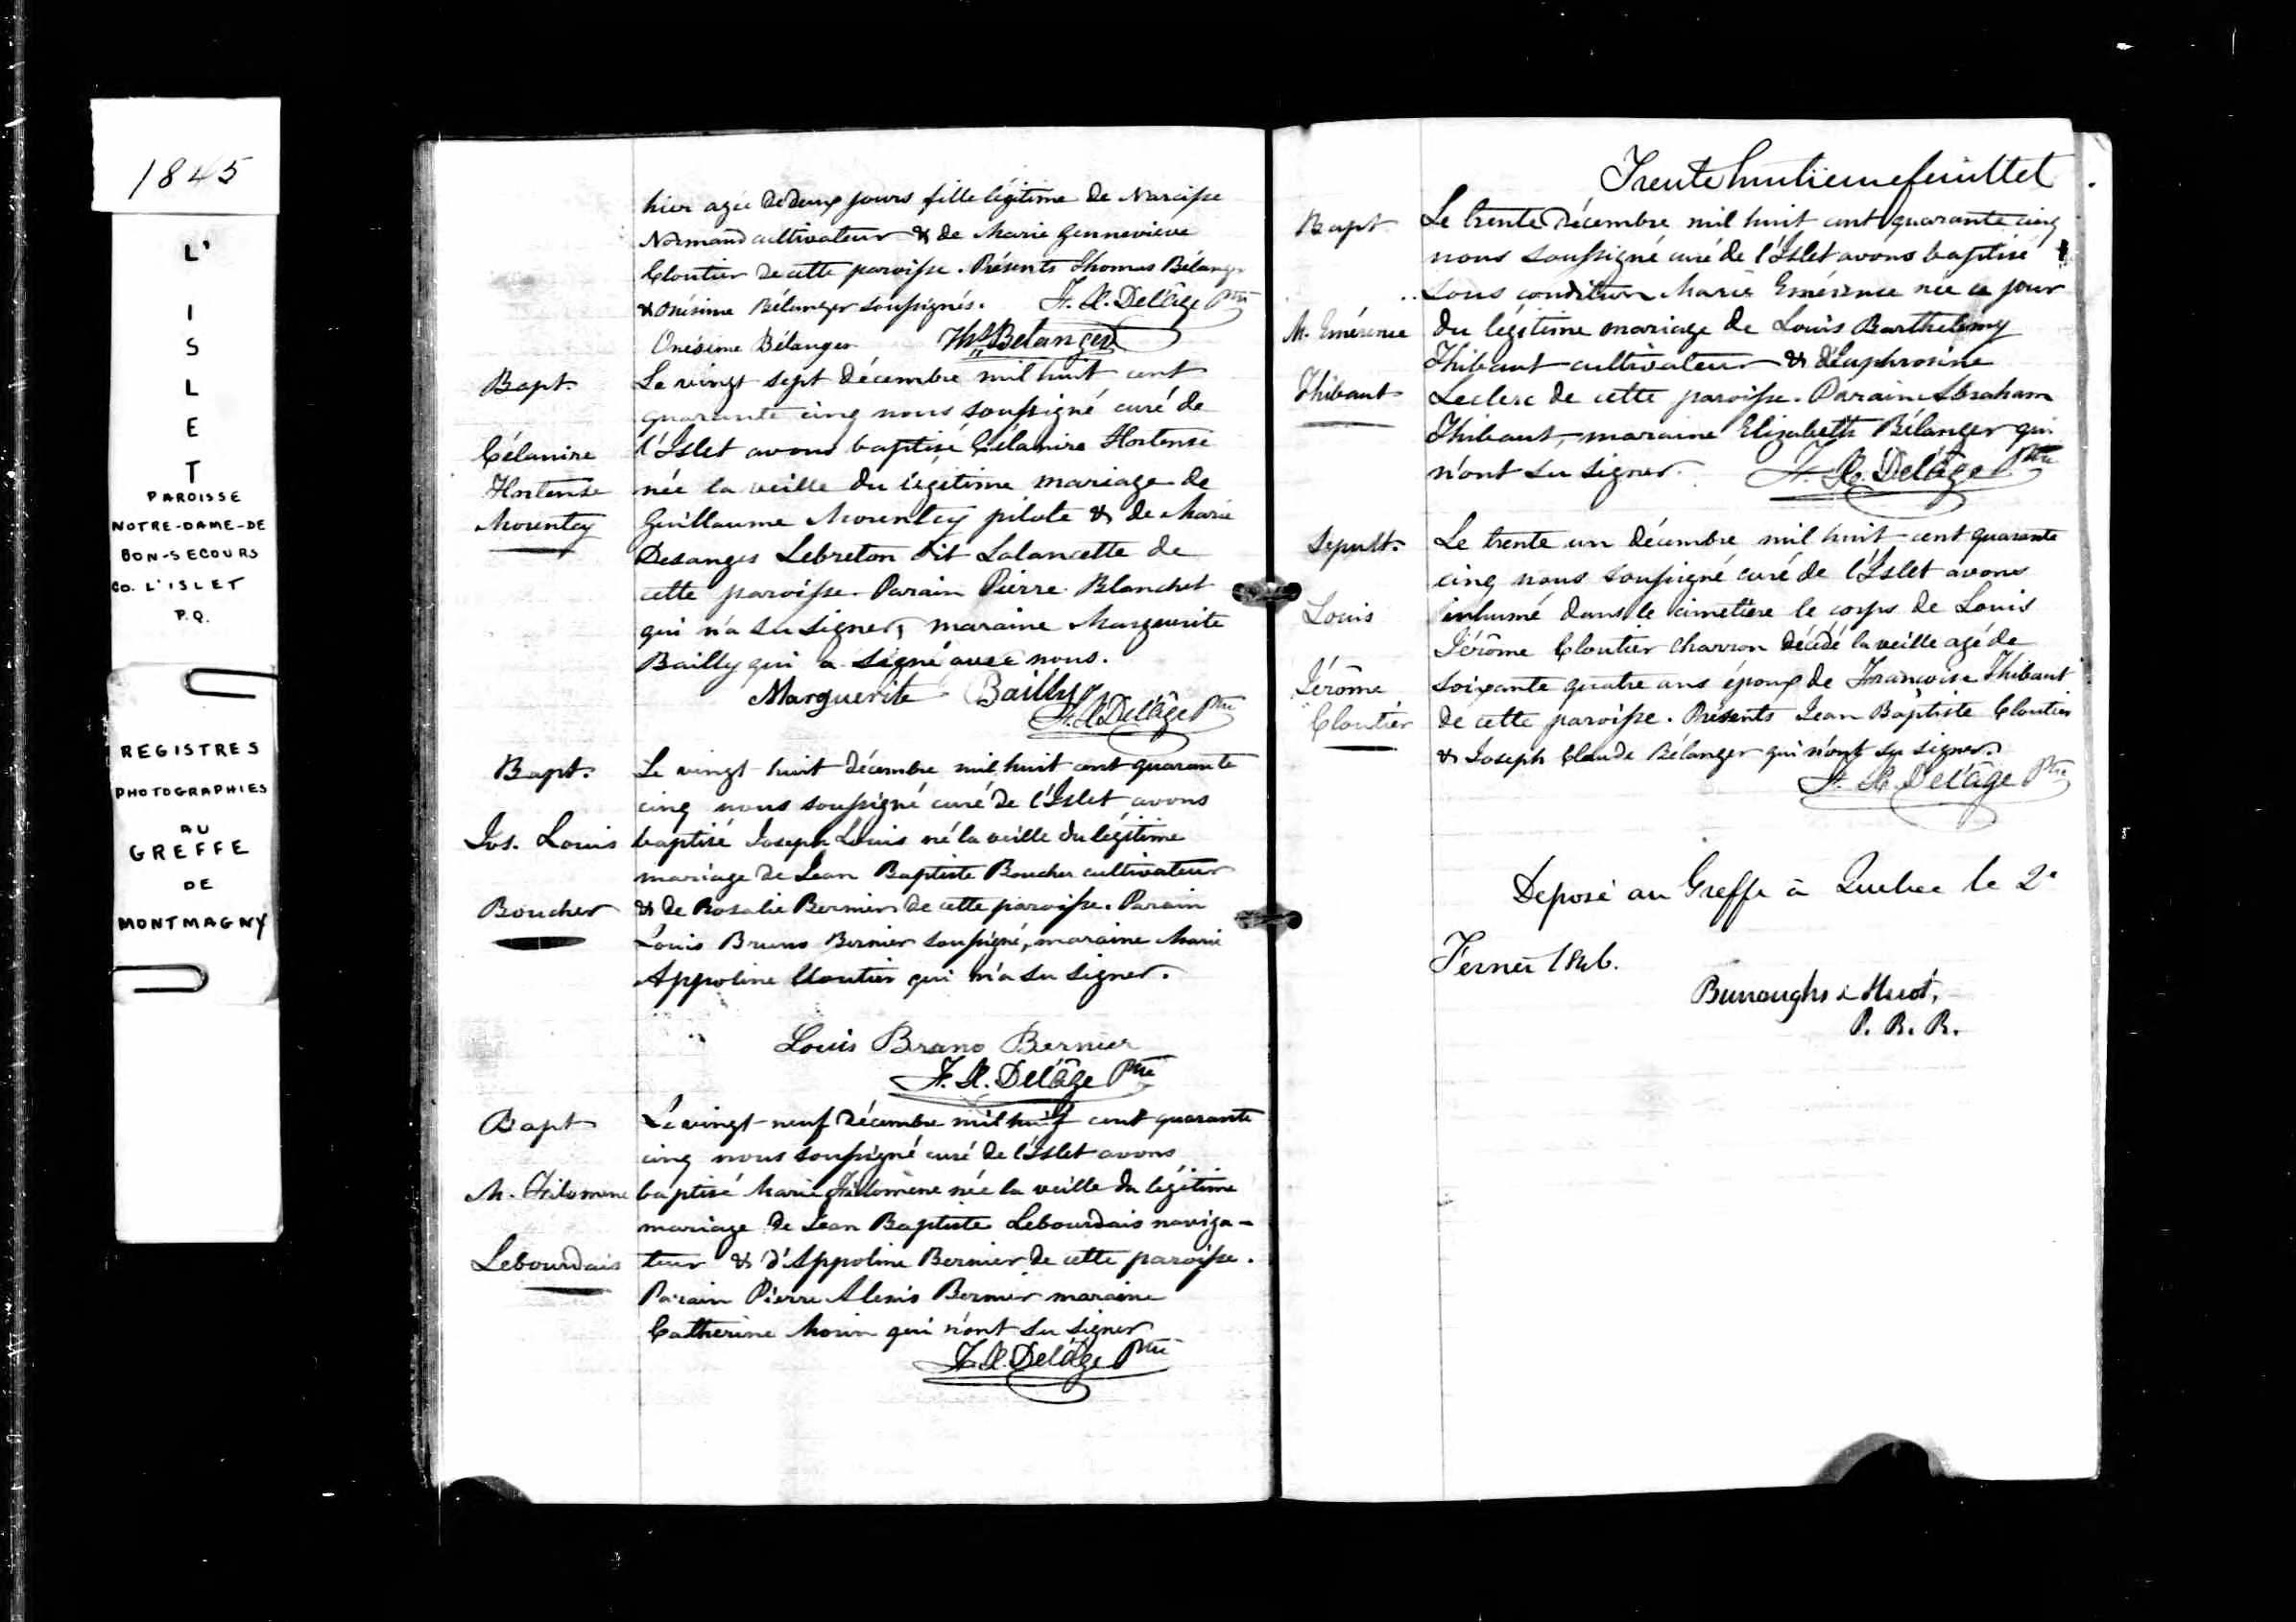 1845
L'
I
S
L
E
T
PAROISSE
NOTRE-DAME-DE
BON-SECOURS
CO. L'ISLET
P.Q.
REGISTRES
PHOTOGRAPHIES
AU
GREFFE
DE
MONTMAGNY
hier agée de deux jours fille légitime de Narcisse
Normand cultivateur & de Marie Genneviève
Cloutier de cette paroisse. Présents Thomas Bélanger
& Onésime Bélanger soussignés. F. X. Delâge Ptre
Onésime Bélanger Ths Belanger
Bapt. Le vingt sept décembre mil huit cent
quarante cinq nous soussigné curé de
Célanire l'Islet avons baptisé Célanire Hortense
Hortense née la veille du légitime mariage de
Mountey Guillaume Mountey pilote & de Marie
Desanges Lebreton dit Lalancette de
cette paroisse. Parain Pierre Blanchet
qui n'a su signer, maraine Marguerite
Bailly qui a signé avec nous.
Marguerite Bailly
F. X. Delâge Ptre
Bapt. Le vingt huit décembre mil huit cent quarante
cinq nous soussigné curé de l'Islet avons
Jos. Louis baptisé Joseph Louis né la veille du légitime
mariage de Jean Baptiste Boucher cultivateur
Boucher & de Rosalie Bernier de cette paroisse. Parain
Louis Bruno Bernier soussigné, maraine Marie
Appoline Cloutier qui n'a su signer.
Louis Bruno Bernier
F. X. Delâge Ptre
Bapt Le vingt-neuf décembre mil huit cent quarante
cinq nous soussigné curé de l'Islet avons
M. Filomène baptisé Marie Filomène née la veille du légitime
mariage de Jean Baptiste Lebourdais naviga-
Lebourdais teur & d'Appoline Bernier de cette paroisse.
Parain Pierre Alexis Bernier maraine
Catherine Morin qui n'ont su signer
F. X. Delâge Ptre
Trente huitieme feuillet
Bapt Le trente décembre mil huit cent quarante cinq
nous soussigné curé de l'Islet avons baptisé
sous condition Marie Emérence née ce jour
M. Emérence du légitime mariage de Louis Barthelemy
Thibaut cultivateur & d'Euphrosine
Thibaut Leclerc de cette paroisse. Parain Abraham
Thibaut, maraine Elizabeth Bélanger qui
n'ont su signer. F. X. Delâge Ptre
Sepult. Le trente un décembre mil huit-cent quarante
cinq nous soussigné curé de l'Islet avons
Louis inhumé dans le cimetière le corps de Louis
Jérôme Cloutier charron décédé la veille agé de
Jérôme soixante quatre ans époux de Françoise Thibaut
Cloutier de cette paroisse. Présents Jean Baptiste Cloutier
& Joseph Claude Bélanger qui n'ont su signer.
F. X. Delâge Ptre
Deposé au Greffe à Quebec le 2e
Fevrier 1846.
Burroughs & Huot,
P. B. R.